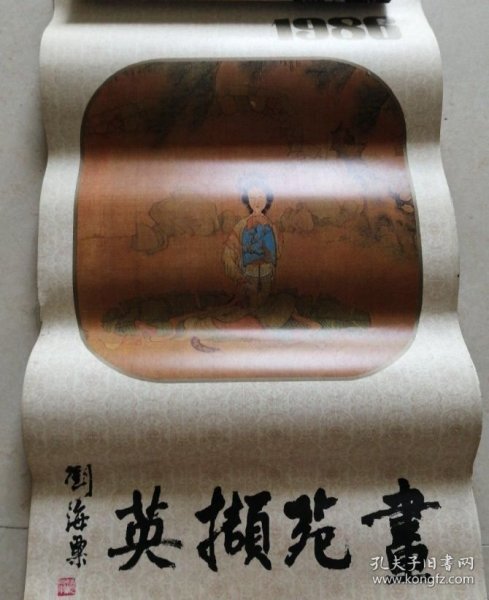 1986
畫苑擷英
劉海粟
孔夫子旧书网
www.kongfz.com